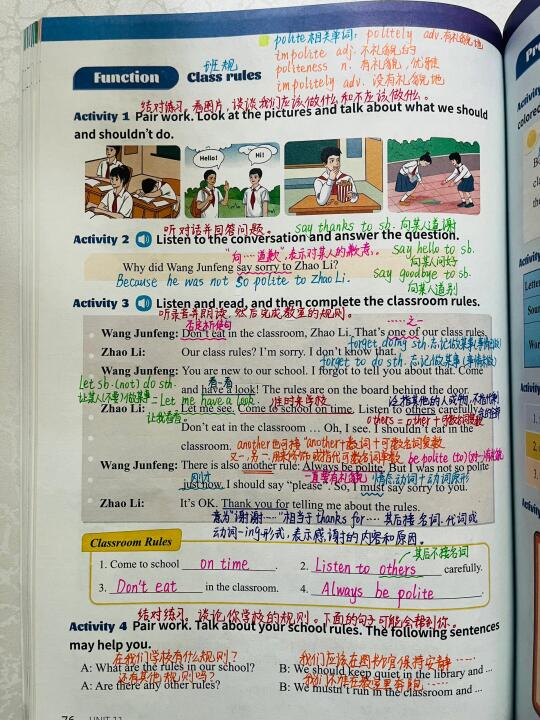 polite相关单词: politely adv. 有礼貌地
impolite adj. 不礼貌的
politeness n. 有礼貌，优雅
impolitely adv. 没有礼貌地
班规
Function Class rules
结对练习。看图片，谈谈我们应该做什么和不应该做什么。
Activity 1 Pair work. Look at the pictures and talk about what we should
and shouldn't do.
Hello!
Hi!
听对话并回答问题。
say thanks to sb. 向某人道谢
Activity 2 Listen to the conversation and answer the question.
"向…道歉", 表示对某人的歉意。
say hello to sb.
向某人问好
Why did Wang Junfeng say sorry to Zhao Li?
say goodbye to sb.
向某人道别
Because he was not so polite to Zhao Li.
Activity 3 Listen and read, and then complete the classroom rules.
听录音并朗读，然后完成教室的规则。
否定祈使句
……之一
Wang Junfeng: Don't eat in the classroom, Zhao Li. That's one of our class rules.
forget doing sth. 忘记做某事(事情已做)
Zhao Li: Our class rules? I'm sorry. I don't know that.
forget to do sth. 忘记做某事(事情未做)
Wang Junfeng: You are new to our school. I forgot to tell you about that. Come
看一看
and have a look! The rules are on the board behind the door.
let sb. (not) do sth.
让某人(不要)做某事
= Let me have a look.
准时来学校
让我看看。
Zhao Li: Let me see. Come to school on time. Listen to others carefully.
others = other + 可数名词复数
Don't eat in the classroom … Oh, I see. I shouldn't eat in the
classroom.
another也可接"another+数词+可数名词复数
be polite (to)
Wang Junfeng: There is also another rule: Always be polite. But I was not so polite
刚才
一直要有礼貌
情态动词+动词原形
just now. I should say "please". So, I must say sorry to you.
Zhao Li: It's OK. Thank you for telling me about the rules.
意为"谢谢……"相当于thanks for…. 其后接名词.代词或
动词-ing形式，表示感谢的内容和原因。
Classroom Rules
其后不接名词
1. Come to school on time.
2. Listen to others carefully.
3. Don't eat in the classroom.
4. Always be polite.
结对练习。谈论你学校的规则。下面的句子可能会帮到你。
Activity 4 Pair work. Talk about your school rules. The following sentences
may help you.
在我们学校有什么规则？
我们应该在图书馆保持安静……
A: What are the rules in our school?
B: We should keep quiet in the library and ...
还有其他规则吗？
A: Are there any other rules?
B: We mustn't run in the classroom and ...
76 UNIT 11